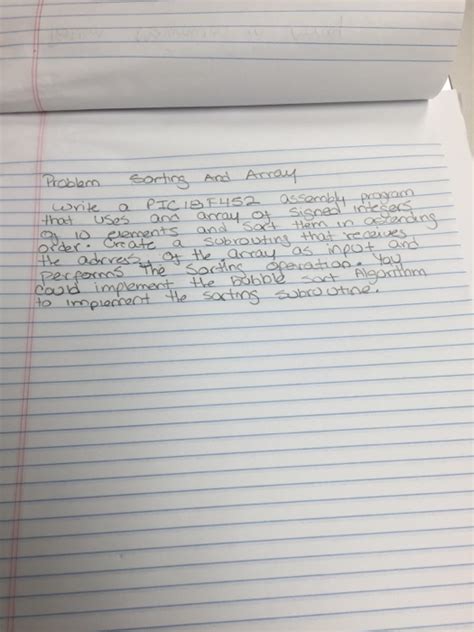 Problem Sorting And Array
Write a PIC18F452 assembly program
that uses and array of signed integers
of 10 elements and sort them in ascending
order. Create a subroutine that receives
the address of the array as input and
performs the sorting operation. You
could implement the Bobble Sort Algorithm
to implement the sorting subroutine.